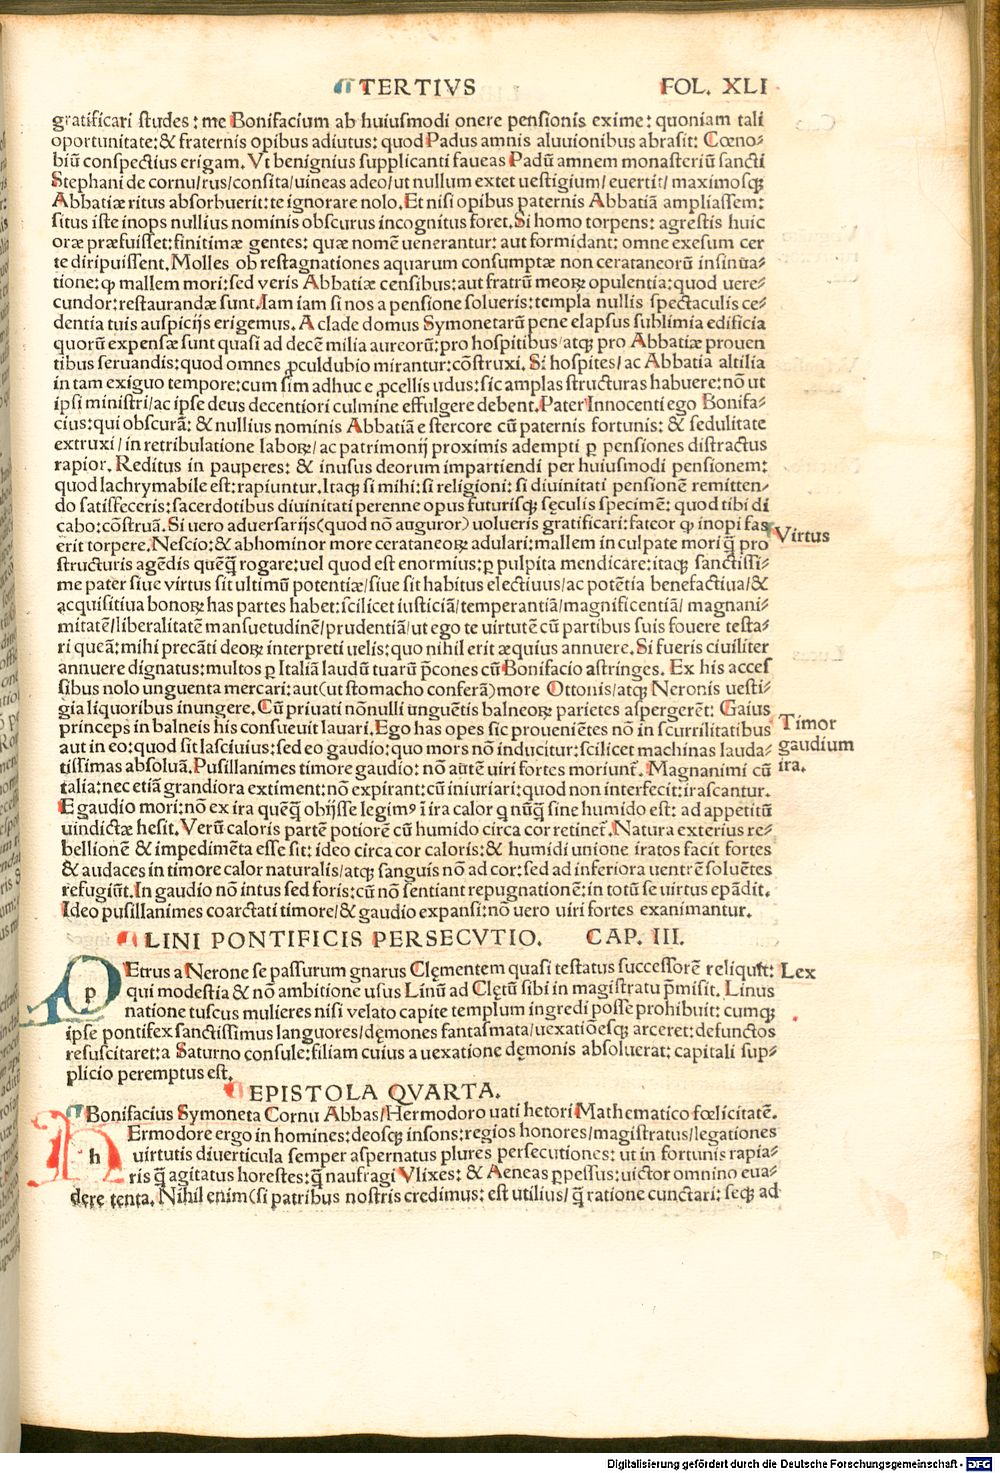 TERTIVS FOL. XLI
gratificari studes: me Bonifacium ab huiusmodi onere pensionis exime: quoniam tali
oportunitate: & fraternis opibus adiutus: quod Padus amnis aluuionibus abrasit: Cœno-
biū conspectius erigam. Vt benignius supplicanti faueas Padū amnem monasteriū sancti
Stephani de cornu/rus/consita/uineas adeo/ut nullum extet uestigium/euertit/maximosqꝫ
Abbatiæ ritus absorbuerit: te ignorare nolo. Et nisi opibus paternis Abbatiā ampliassem:
situs iste inops nullius nominis obscurus incognitus foret. Si homo torpens: agrestis huic
oræ præfuisset: finitimæ gentes: quæ nomē uenerantur: aut formidant: omne exesum cer
te diripuissent. Molles ob restagnationes aquarum consumptæ non cerataneorū insinua-
tione: ꝙ mallem mori: sed veris Abbatiæ censibus: aut fratrū meoꝝ opulentia: quod uere-
cundor: restaurandæ sunt. Iam iam si nos a pensione solueris: templa nullis spectaculis ce-
dentia tuis auspicijs erigemus. A clade domus Symonetarū pene elapsus sublimia edificia
quorū expensæ sunt quasi ad decē milia aureorū: pro hospitibus/atqꝫ pro Abbatiæ prouen
tibus seruandis: quod omnes ꝓculdubio mirantur: cōstruxi. Si hospites/ac Abbatia altilia
in tam exiguo tempore: cum sim adhuc e ꝓcellis udus: sic amplas structuras habuere: nō ut
ipsi ministri/ac ipse deus decentiori culmine effulgere debent. Pater Innocenti ego Bonifa-
cius: qui obscurā: & nullius nominis Abbatiā e stercore cū paternis fortunis: & sedulitate
extruxi/in retribulatione laboꝝ/ac patrimonij proximis adempti ꝑ pensiones distractus
rapior. Reditus in pauperes: & inusus deorum impartiendi per huiusmodi pensionem:
quod lachrymabile est: rapiuntur. Itaqꝫ si mihi: si religioni: si diuinitati pensionē remitten-
do satisfeceris: sacerdotibus diuinitati perenne opus futurisqꝫ sęculis specimē: quod tibi di
cabo: cōstruā. Si uero aduersarijs (quod nō auguror) uolueris gratificari: fateor ꝙ inopi fas
erit torpere. Nescio: & abhominor more cerataneoꝝ adulari: mallem in culpate mori q̄ pro
structuris agēdis quēq̄ rogare: uel quod est enormius: ꝑ pulpita mendicare: itaqꝫ sanctissi-
me pater siue virtus sit ultimū potentiæ/siue sit habitus electiuus/ac potētia benefactiua/&
acquisitiua bonoꝝ has partes habet: scilicet iusticiā/temperantiā/magnificentiā/magnani-
mitatē/liberalitatē mansuetudinē/prudentiā/ut ego te uirtutē cū partibus suis fouere testa-
ri queā: mihi precāti deoꝝ interpreti uelis: quo nihil erit æquius annuere. Si fueris ciuiliter
annuere dignatus: multos ꝑ Italiā laudū tuarū p̄cones cū Bonifacio astringes. Ex his acces
sibus nolo unguenta mercari: aut (ut stomacho conferā) more Ottonis/atqꝫ Neronis uesti-
gia liquoribus inungere. Cū priuati nōnulli unguētis balneoꝝ parietes aspergerēt: Gaius
princeps in balneis his consueuit lauari. Ego has opes sic prouenientes nō in scurrilitatibus
aut in eo: quod sit lasciuius: sed eo gaudio: quo mors nō inducitur: scilicet machinas lauda-
tissimas absoluā. Pusillanimes timore gaudio: nō autē uiri fortes moriunt̄. Magnanimi cū
talia: nec etiā grandiora extiment: nō expirant: cū iniuriari: quod non interfecit: irascantur.
E gaudio mori: nō ex ira quēq̄ obijsse legimꝰ ī ira calor q nūq̄ sine humido est: ad appetitū
uindictæ hesit. Verū caloris partē potiorē cū humido circa cor retinet̄. Natura exterius re-
bellionē & impedimēta esse sit: ideo circa cor caloris: & humidi unione iratos facit fortes
& audaces in timore calor naturalis/atqꝫ sanguis nō ad cor: sed ad inferiora uentrē soluētes
refugiūt. In gaudio nō intus sed foris: cū nō sentiant repugnationē: in totū se uirtus epādit.
Ideo pusillanimes coarctati timore/& gaudio expansi: nō uero uiri fortes exanimantur.
Virtus
Timor
gaudium
ira.
LINI PONTIFICIS PERSECVTIO. CAP. III.
p Etrus a Nerone se passurum gnarus Clęmentem quasi testatus successorē reliquit:
qui modestia & nō ambitione usus Linū ad Clętū sibi in magistratu p̄misit. Linus
natione tuscus mulieres nisi velato capite templum ingredi posse prohibuit: cumqꝫ
ipse pontifex sanctissimus languores/dęmones fantasmata/uexationēsqꝫ arceret: defunctos
resuscitaret: a Saturno consule: filiam cuius a uexatione dęmonis absoluerat: capitali sup-
plicio peremptus est.
Lex
EPISTOLA QVARTA.
Bonifacius Symoneta Cornu Abbas/Hermodoro uati hetori Mathematico fœlicitatē.
h Ermodore ergo in homines: deosqꝫ insons: regios honores/magistratus/legationes
uirtutis diuerticula semper aspernatus plures persecutiones: ut in fortunis rapia-
ris q̄ agitatus horestes: q̄ naufragi Vlixes: & Aeneas ꝑpessus: uictor omnino eua-
dere tenta. Nihil enim (si patribus nostris credimus: est utilius/q̄ ratione cunctari: seqꝫ ad
Digitalisierung gefördert durch die Deutsche Forschungsgemeinschaft - DFG